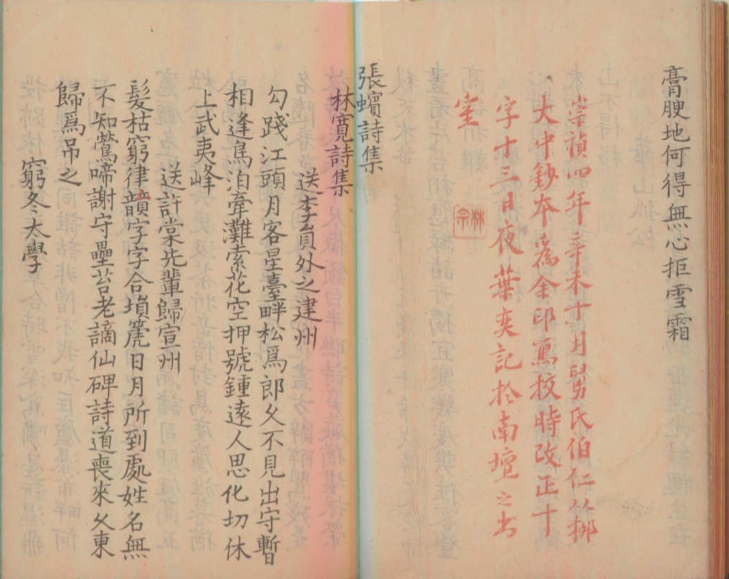 膏腴地何得無心拒雪霜
崇禎四年辛未十月舅氏伯仁以柳
大中鈔本爲余印寫校時改正十
字十三日夜葉奕記於南壇之書
室
林宗
張蠙詩集
林寬詩集
送李員外之建州
勾踐江頭月客星臺畔松爲郎久不見出守暫
相逢鳥泊葦灘索花空押號鍾遠人思化切休
上武夷峰
送許棠先輩歸宣州
髮枯窮律韻字字合塤篪日月所到處姓名無
不知鶯啼謝守壘苔老謫仙碑詩道喪來久東
歸爲弔之
窮冬太學